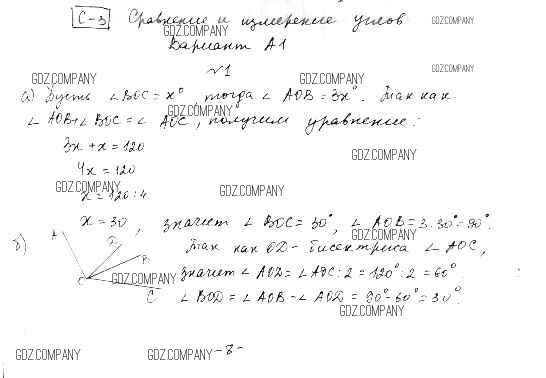 С-3 Сравнение и измерение углов
GDZ.COMPANY
GDZ.COMPANY
Вариант А1
№1
GDZ.COMPANY
GDZ.COMPANY
GDZ.COMPANY
а) Пусть ∠ BOC = x°, тогда ∠ AOB = 3x°. Так как
GDZ.COMPANY
∠ AOB + ∠ BOC = ∠ AOC, получим уравнение:
3x + x = 120
GDZ.COMPANY
4x = 120
GDZ.COMPANY
GDZ.COMPANY
x = 120 : 4
x = 30, значит ∠ BOC = 30°, ∠ AOB = 3·30° = 90°.
GDZ.COMPANY
б) A D B O C
Так как OD - биссектриса ∠ AOC,
GDZ.COMPANY
значит ∠ AOD = ∠ AOC : 2 = 120° : 2 = 60°
∠ BOD = ∠ AOB - ∠ AOD = 90° - 60° = 30°.
GDZ.COMPANY
GDZ.COMPANY
GDZ.COMPANY
-8-